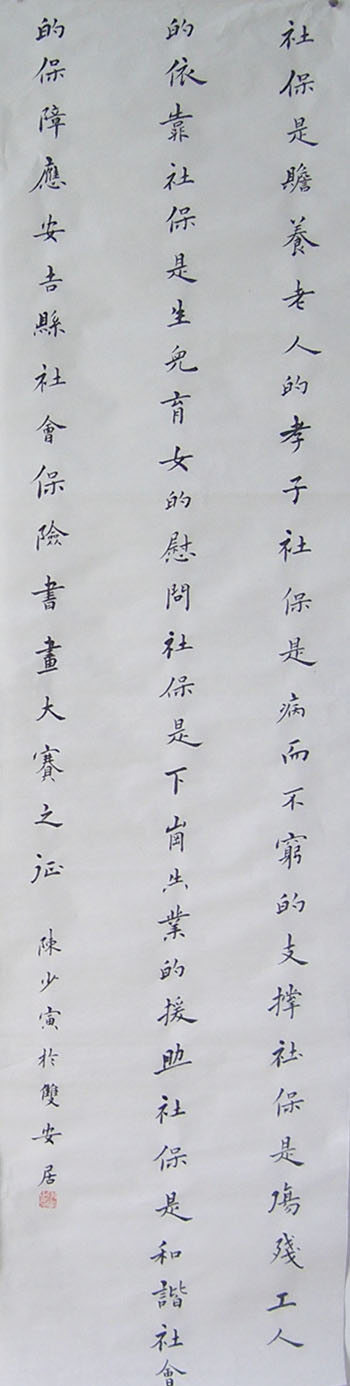 社保是贍養老人的孝子社保是病而不窮的支撑社保是傷殘工人
的依靠社保是生兒育女的慰問社保是下崗失業的援助社保是和諧社會
的保障應安吉縣社會保險書畫大賽之征
陳少寅於雙安居